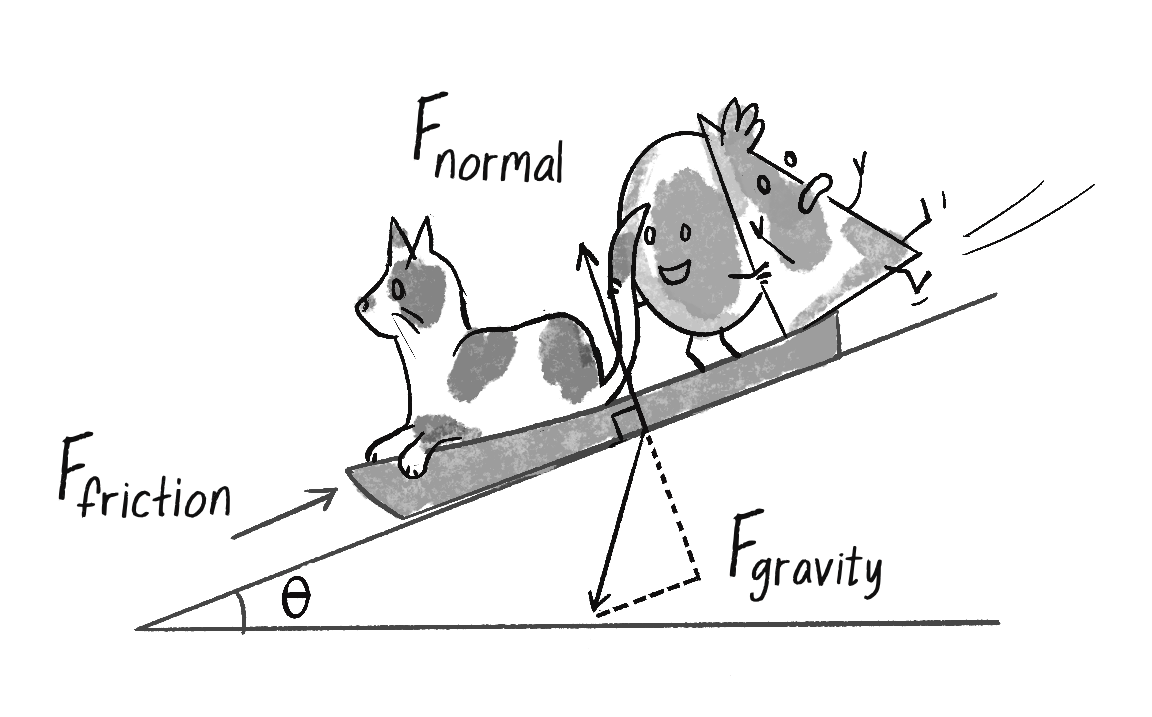 Fnormal
Ffriction
θ
Fgravity